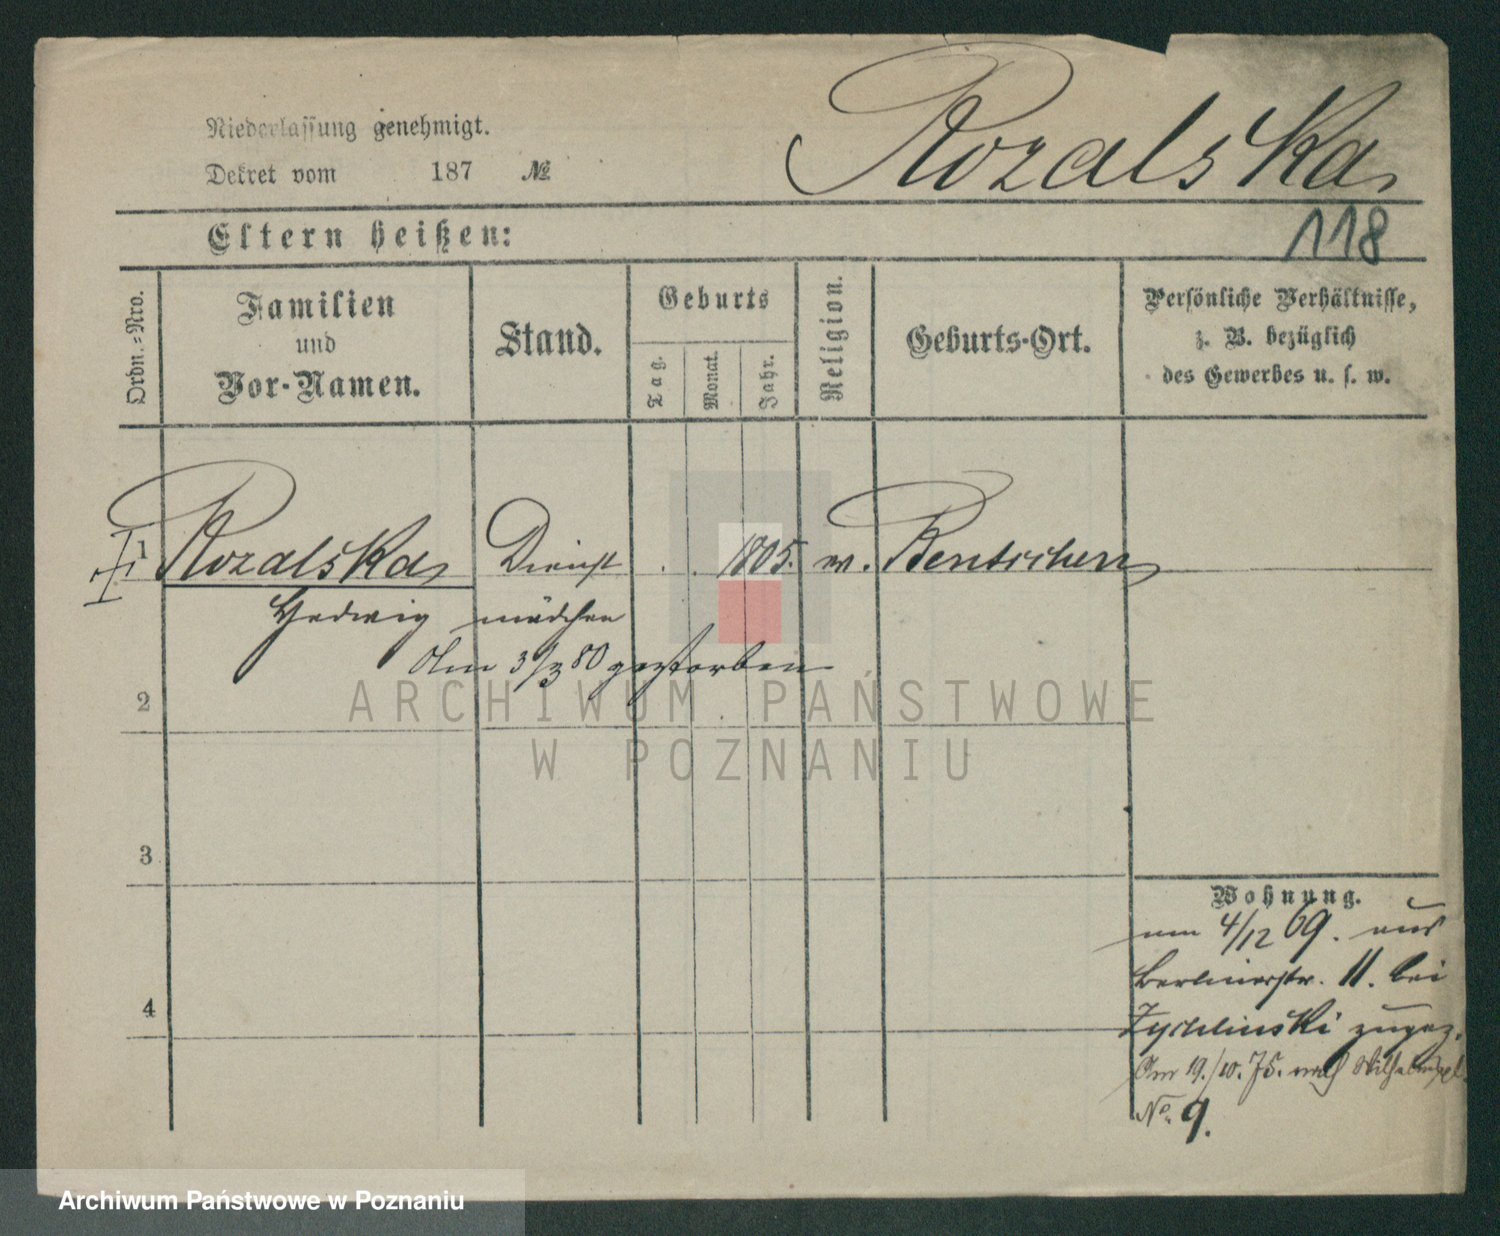 Niederlassung genehmigt.
Dekret vom 187 №
Rozalska
Eltern heißen:
118
Ordn.-Nro.
Familien
und
Vor-Namen.
Stand.
Geburts
Tag.
Monat.
Jahr.
Religion.
Geburts-Ort.
Persönliche Verhältnisse,
z. B. bezüglich
des Gewerbes u. s. w.
1 Rozalska Dienst . . 1805. Bentschen
Hedwig mädchen
Am 3/3 80 gestorben
2
ARCHIWUM PAŃSTWOWE
W POZNANIU
3
Wohnung.
am 4/12 69. aus
Berlinerstr. 11. bei
Zychlinski zugez.
4
Am 19./10. 75. nach Wilhelmspl.
No. 9.
Archiwum Państwowe w Poznaniu